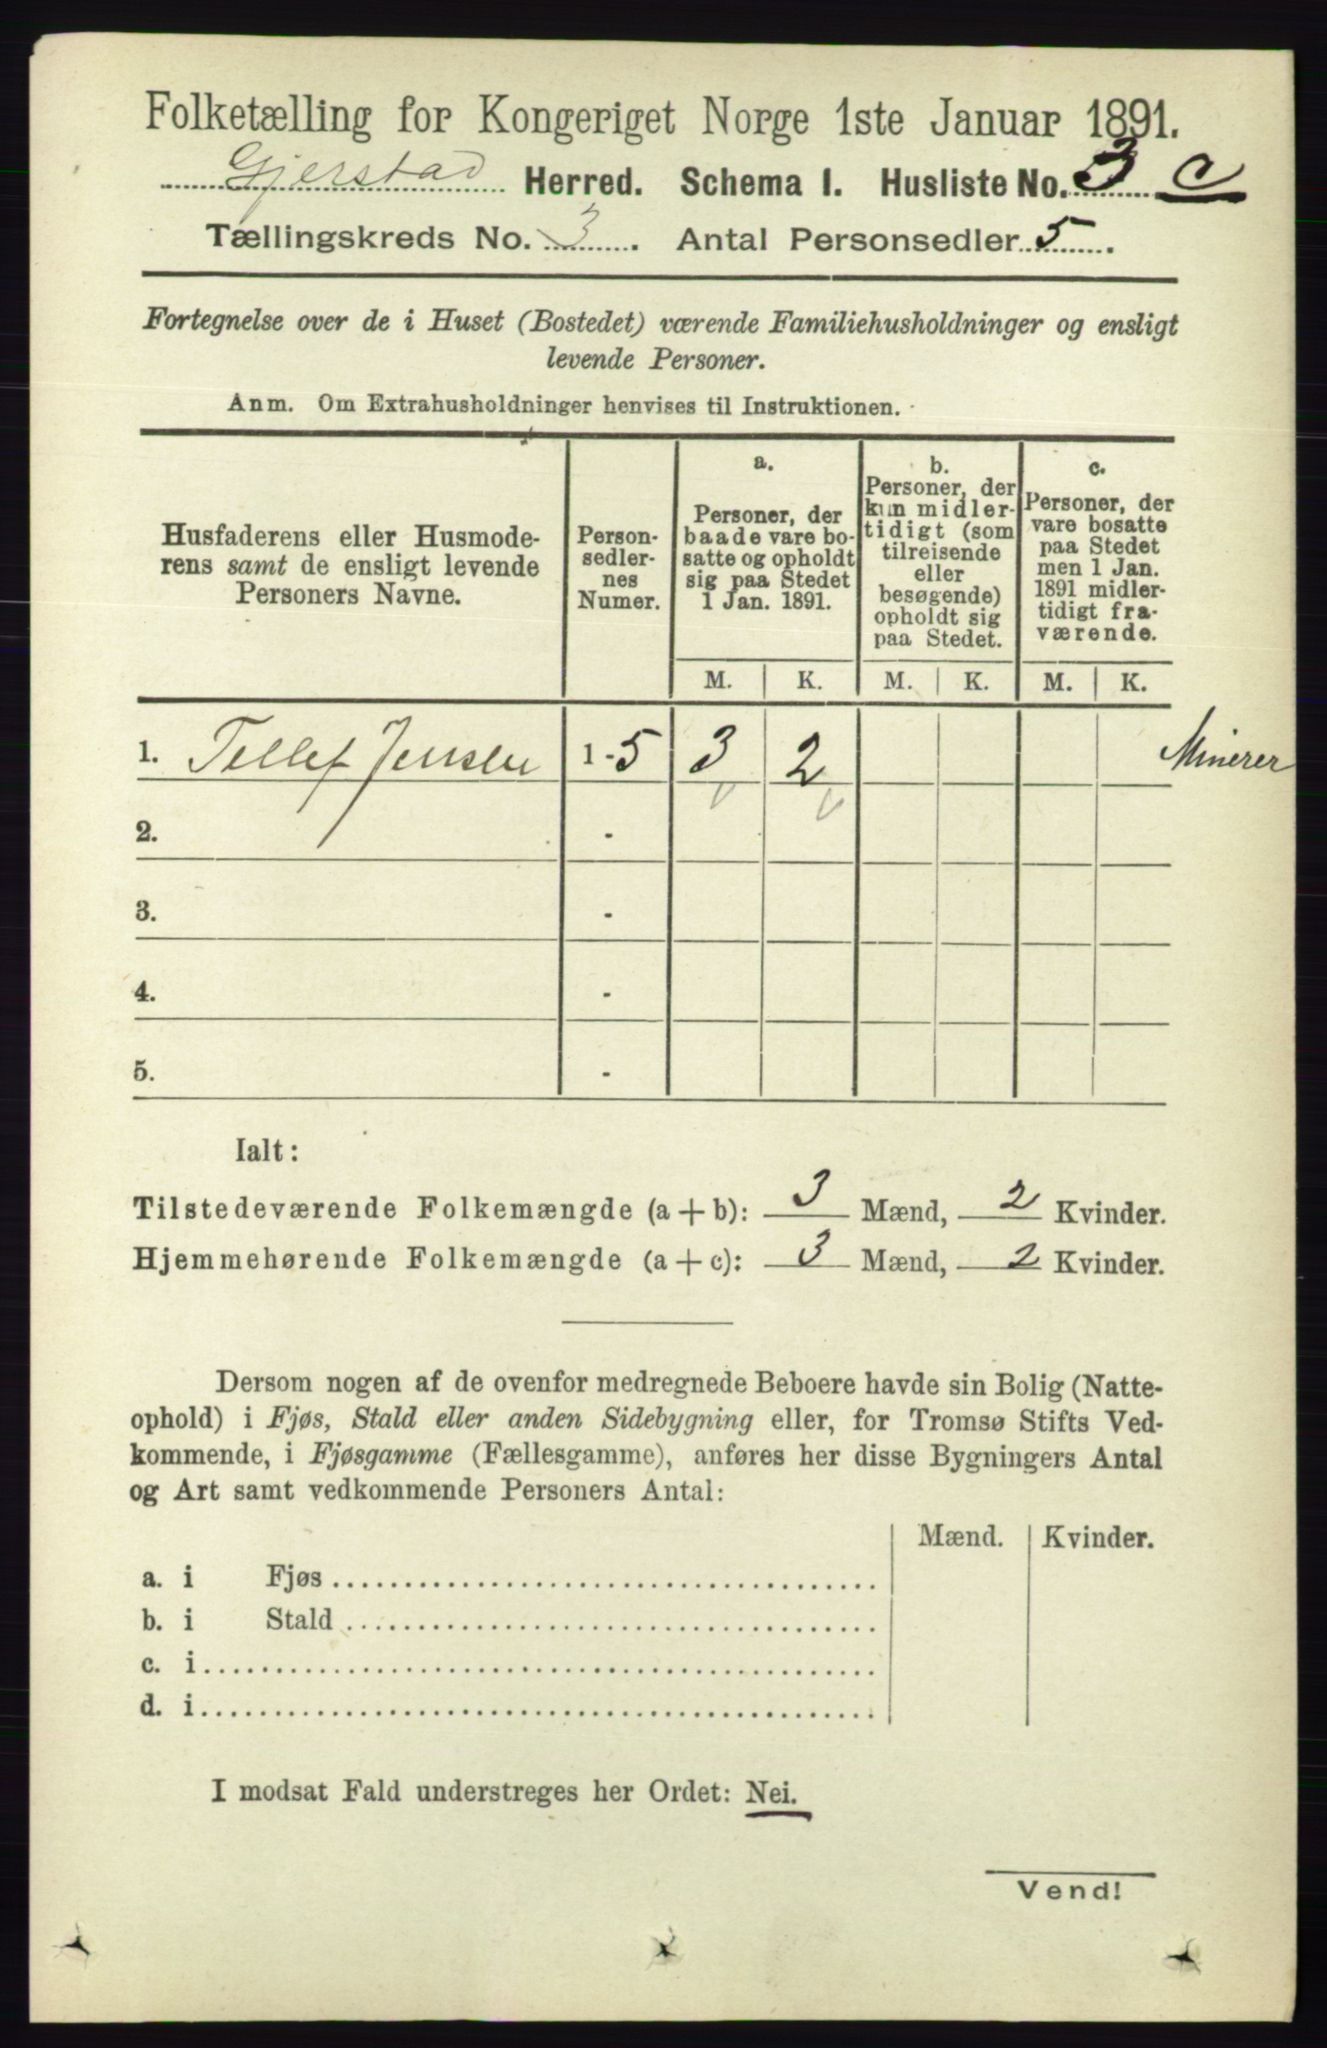 Folketælling for Kongeriget Norge 1ste Januar 1891.
Gjerstad Herred. Schema I. Husliste No. 3 c
Tællingskreds No. 3. Antal Personsedler 5.
Fortegnelse over de i Huset (Bostedet) værende Familiehusholdninger og ensligt
levende Personer.
Anm. Om Extrahusholdninger henvises til Instruktionen.
Husfaderens eller Husmode-
rens samt de ensligt levende
Personers Navne.
Person-
sedler-
nes
Numer.
a.
Personer, der
baade vare bo-
satte og opholdt
sig paa Stedet
1 Jan. 1891.
b.
Personer, der
kun midler-
tidigt (som
tilreisende
eller
besøgende)
opholdt sig
paa Stedet.
c.
Personer, der
vare bosatte
paa Stedet
men 1 Jan.
1891 midler-
tidigt fra-
værende.
M. K. M. K. M. K.
1. Tellef Jensen 1-5 3 2 Minerer
2. -
3. -
4. -
5. -
Ialt:
Tilstedeværende Folkemængde (a + b): 3 Mænd, 2 Kvinder.
Hjemmehørende Folkemængde (a + c): 3 Mænd, 2 Kvinder.
Dersom nogen af de ovenfor medregnede Beboere havde sin Bolig (Natte-
ophold) i Fjøs, Stald eller anden Sidebygning eller, for Tromsø Stifts Ved-
kommende, i Fjøsgamme (Fællesgamme), anføres her disse Bygningers Antal
og Art samt vedkommende Personers Antal:
Mænd. Kvinder.
a. i Fjøs
b. i Stald
c. i
d. i
I modsat Fald understreges her Ordet: Nei.
Vend!